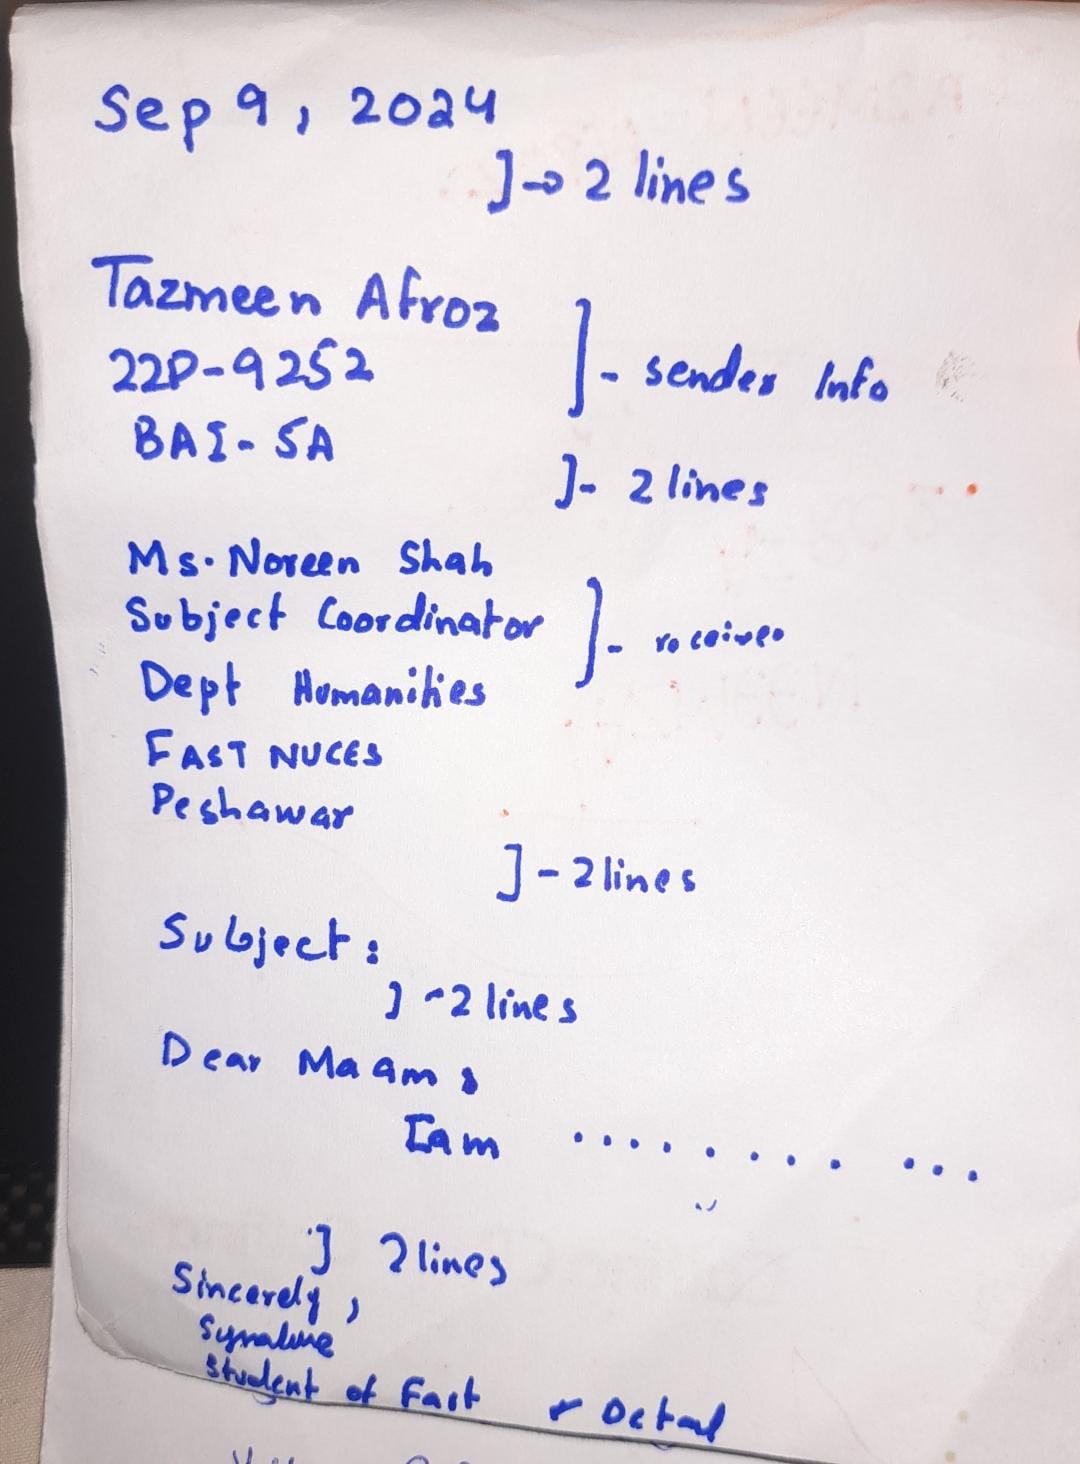 Sep 9, 2024
]→ 2 lines
Tazmeen Afroz
22P-9252
] - sender Info
BAI-5A
]- 2 lines
Ms. Noreen Shah
Subject Coordinator
] - receiver
Dept Humanities
FAST NUCES
Peshawar
] - 2 lines
Subject:
] - 2 lines
Dear Maam,
I am ............
] 2 lines
Sincerely,
Signature
Student of Fast